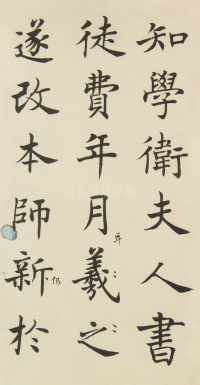 知學衛夫人書
徒費年月耳羲之
遂改本師仍新於